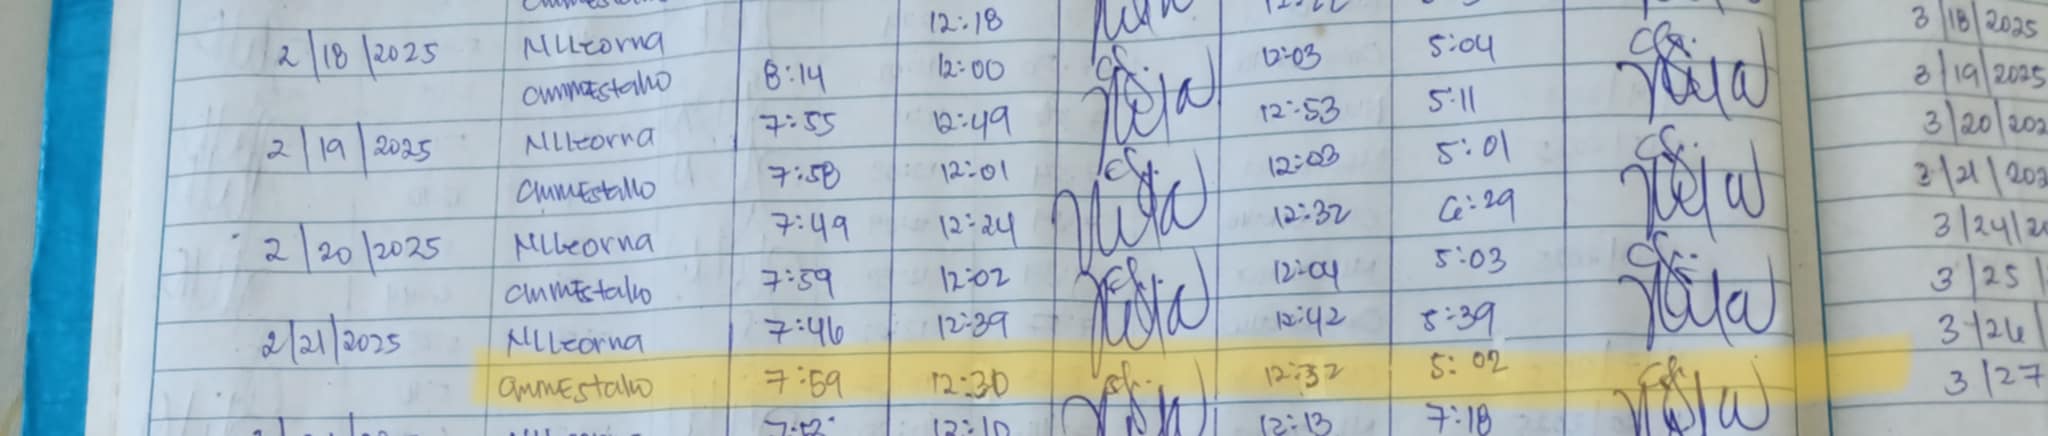 2/18/2025 NLLeorna 12:18
CMMEstallo 8:14 12:00 12:03 5:04
2/19/2025 NLLeorna 7:55 12:49 12:53 5:11
CMMEstallo 7:58 12:01 12:03 5:01
2/20/2025 NLLeorna 7:49 12:24 12:32 6:29
CMMEstallo 7:59 12:02 12:04 5:03
2/21/2025 NLLeorna 7:46 12:39 12:42 5:39
CMMEstallo 7:59 12:30 12:32 5:02
12:10 12:13 7:18
3/18/2025
3/19/2025
3/20/202
3/21/202
3/24/2
3/25/
3/26/
3/27